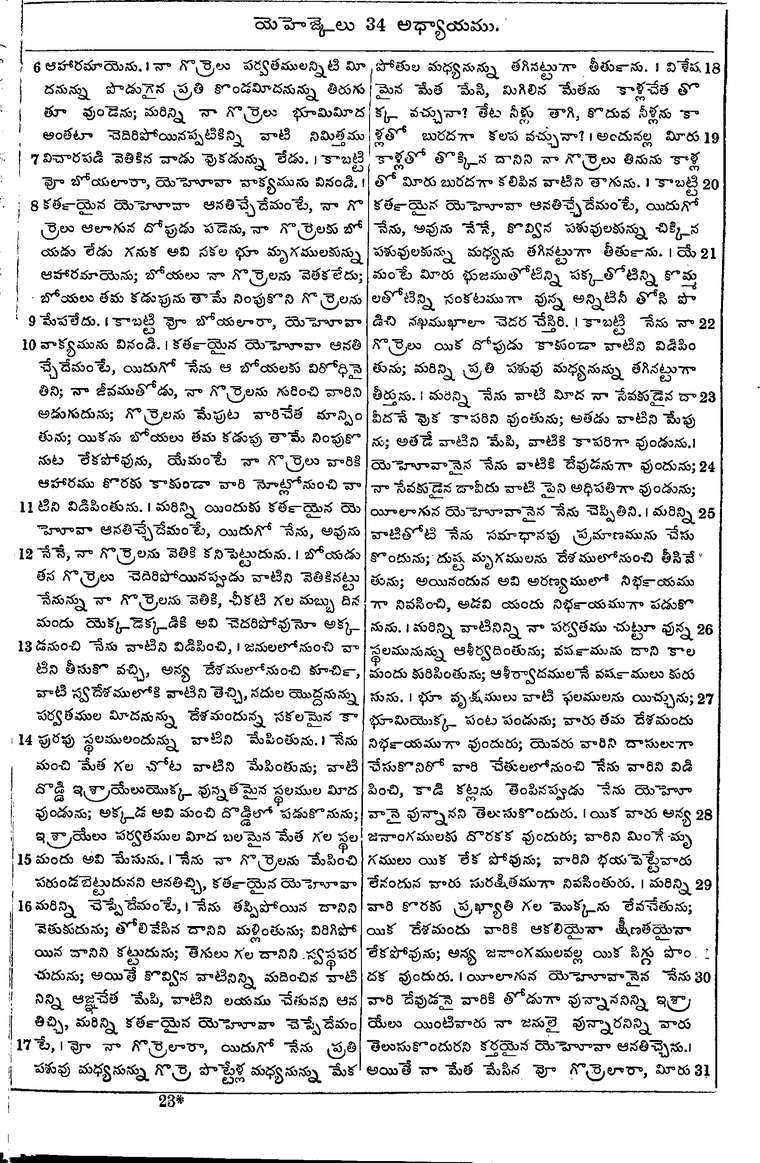 యెహెజ్కెలు 34 అధ్యాయము.
6 ఆహారమాయెను. । నా గొర్రెలు పర్వతములన్నిటి మీ
దనున్ను పొడుగైన ప్రతి కొండమీదనున్ను తిరుగు
తూ వుండెను; మరిన్ని నా గొర్రెలు భూమిమీద
అంతటా చెదిరిపోయినప్పటికిన్ని వాటి నిమిత్తము
7 విచారపడి వెతికిన వాడు వొకడున్ను లేడు. । కాబట్టి
వో బోయలారా, యెహోవా వాక్యమును వినండి. ।
8 కర్తయైన యెహోవా ఆనతిచ్చేదేమంటే, నా గొ
ర్రెలు ఆలాగున దోపుడు పడెను, నా గొర్రెలకు బో
యడు లేడు గనుక అవి సకల భూ మృగములకున్ను
ఆహారమాయెను; బోయలు నా గొర్రెలను వెతకలేదు;
బోయలు తమ కడుపును తామే నింపుకొని గొర్రెలను
9 మేపలేదు. । కాబట్టి వో బోయలారా, యెహోవా
10 వాక్యమును వినండి. । కర్తయైన యెహోవా ఆనతి
చ్చేదేమంటే, యిదుగో నేను ఆ బోయలకు విరోధినై
తిని; నా జీవముతోడు, నా గొర్రెలను గురించి వారిని
అడుగుదును; గొర్రెలను మేపుట వారిచేత మాన్పిం
తును; యికను బోయలు తమ కడుపు తామే నింపుకొ
నుట లేకపోవును, యేమంటే నా గొర్రెలు వారికి
ఆహారము కొరకు కాకుండా వారి నోట్లోనుంచి వా
11 టిని విడిపింతును. । మరిన్ని యిందుకు కర్తయైన యె
హోవా ఆనతిచ్చేదేమంటే, యిదుగో నేను, అవును
12 నేనే, నా గొర్రెలను వెతికి కనిపెట్టుదును. । బోయడు
తన గొర్రెలు చెదిరిపోయినప్పుడు వాటిని వెతికినట్టు
నేనున్ను నా గొర్రెలను వెతికి, చీకటి గల మబ్బు దిన
మందు యెక్కడెక్కడికి అవి చెదరిపోవునో అక్క
13 డనుంచి నేను వాటిని విడిపించి, । జనులలోనుంచి వా
టిని తీసుకొ వచ్చి, అన్య దేశములోనుంచి కూర్చి,
వాటి స్వదేశములోకి వాటిని తెచ్చి, నదుల యొద్దనున్ను
పర్వతముల మీదనున్ను దేశమందున్న సకలమైన కా
14 పురపు స్థలములందున్ను వాటిని మేపింతును. । నేను
మంచి మేత గల చోట వాటిని మేపింతును; వాటి
దొడ్డి ఇశ్రాయేలుయొక్క వున్నతమైన స్థలముల మీద
వుండును; అక్కడ అవి మంచి దొడ్డిలో పడుకొనును;
ఇశ్రాయేలు పర్వతముల మీద బలమైన మేత గల స్థల
15 మందు అవి మేసును. । నేను నా గొర్రెలను మేపించి
పరుండబెట్టుదునని ఆనతిచ్చి, కర్తయైన యెహోవా
16 మరిన్ని చెప్పేదేమంటే, । నేను తప్పిపోయిన దానిని
వెతుకుదును; తోలివేసిన దానిని మళ్లింతును; విరిగిపో
యిన దానిని కట్టుదును; తెగులు గల దానిని స్వస్థపర
చుదును; అయితే కొవ్విన వాటినిన్ని మదించిన వాటి
నిన్ని ఆజ్ఞచేత మేపి, వాటిని లయము చేతునని ఆన
తిచ్చి, మరిన్ని కర్తయైన యెహోవా చెప్పేదేమం
17 టే, । వో నా గొర్రెలారా, యిదుగో నేను ప్రతి
పశువు మధ్యనున్ను గొర్రె పొట్టేళ్ల మధ్యనున్ను మేక
పోతుల మధ్యనున్ను తగినట్టుగా తీర్తును. । విశేష 18
మైన మేత మేపి, మిగిలిన మేతను కాళ్లచేత తొ
క్క వచ్చునా? తేట నీళ్లు తాగి, కొదువ నీళ్లను కా
ళ్లతో బురదగా కలప వచ్చునా? । అందునల్ల మీరు 19
కాళ్లతో తొక్కిన దానిని నా గొర్రెలు తినును కాళ్ల
తో మీరు బురదగా కలిపిన వాటిని తాగును. । కాబట్టి 20
కర్తయైన యెహోవా ఆనతిచ్చేదేమంటే, యిదుగో
నేను, అవును నేనే, కొవ్విన పశువులకున్ను చిక్కిన
పశువులకున్ను మధ్యను తగినట్టుగా తీర్తును. । యే 21
మంటే మీరు భుజముతోటిన్ని పక్కతోటిన్ని కొమ్మ
లతోటిన్ని సంకటముగా వున్న అన్నిటినీ తోసి పొ
డిచి నఖముఖాలా చెదర చేస్తిరి. । కాబట్టి నేను నా 22
గొర్రెలు యిక దోపుడు కాకుండా వాటిని విడిపిం
తును; మరిన్ని ప్రతి పశువు మధ్యనున్ను తగినట్టుగా
తీర్తును. । మరిన్ని నేను వాటి మీద నా సేవకుడైన దా 23
వీదనే వొక కాపరిని వుంతును; అతడు వాటిని మేపు
ను; అతడే వాటిని మేపి, వాటికి కాపరిగా వుండును. ।
యెహోవానైన నేను వాటికి దేవుడనుగా వుందును; 24
నా సేవకుడైన దావీదు వాటి పైని అధిపతిగా వుండును;
యీలాగున యెహోవానైన నేను చెప్పితిని. । మరిన్ని 25
వాటితోటి నేను సమాధానపు ప్రమాణమును చేసు
కొందును; దుష్ట మృగములను దేశములోనుంచి తీసివే
తును; అయినందున అవి అరణ్యములో నిర్భయము
గా నివసించి, అడవి యందు నిర్భయముగా పడుకొ
నును. । మరిన్ని వాటినిన్ని నా పర్వతము చుట్టూ వున్న 26
స్థలమునున్ను ఆశీర్వదింతును; వర్షమును దాని కాల
మందు కురిపింతును; ఆశీర్వాదములనే వర్షములు కురు
సును. । భూ వృక్షములు వాటి ఫలములను యిచ్చును; 27
భూమియొక్క పంట పండును; వారు తమ దేశమందు
నిర్భయముగా వుందురు; యెవరు వారిని దాసులుగా
చేసుకొనిరో వారి చేతులలోనుంచి నేను వారిని విడి
పించి, కాడి కట్లను తెంపినప్పుడు నేను యెహోవా
వానై వున్నానని తెలుసుకొందురు. । యిక వారు అన్య 28
జనాంగములకు దొరకక వుందురు; వారిని మింగే మృ
గములు యిక లేక పోవును; వారిని భయపెట్టేవారు
లేనందున వారు సురక్షితముగా నివసింతురు. । మరిన్ని 29
వారి కొరకు ప్రఖ్యాతి గల మొక్కను లేవచేతును;
యిక దేశమందు వారికి ఆకలియైనా క్షీణతయైనా
లేకపోవును; అన్య జనాంగములవల్ల యిక సిగ్గు పొం
దక వుందురు. । యీలాగున యెహోవానైన నేను 30
వారి దేవుడనై వారికి తోడుగా వున్నాననిన్ని ఇశ్రా
యేలు యింటివారు నా జనులై వున్నారనిన్ని వారు
తెలుసుకొందురని కర్తయైన యెహోవా ఆనతిచ్చెను. ।
అయితే నా మేత మేసిన వో గొర్రెలారా, మీరు 31
23*